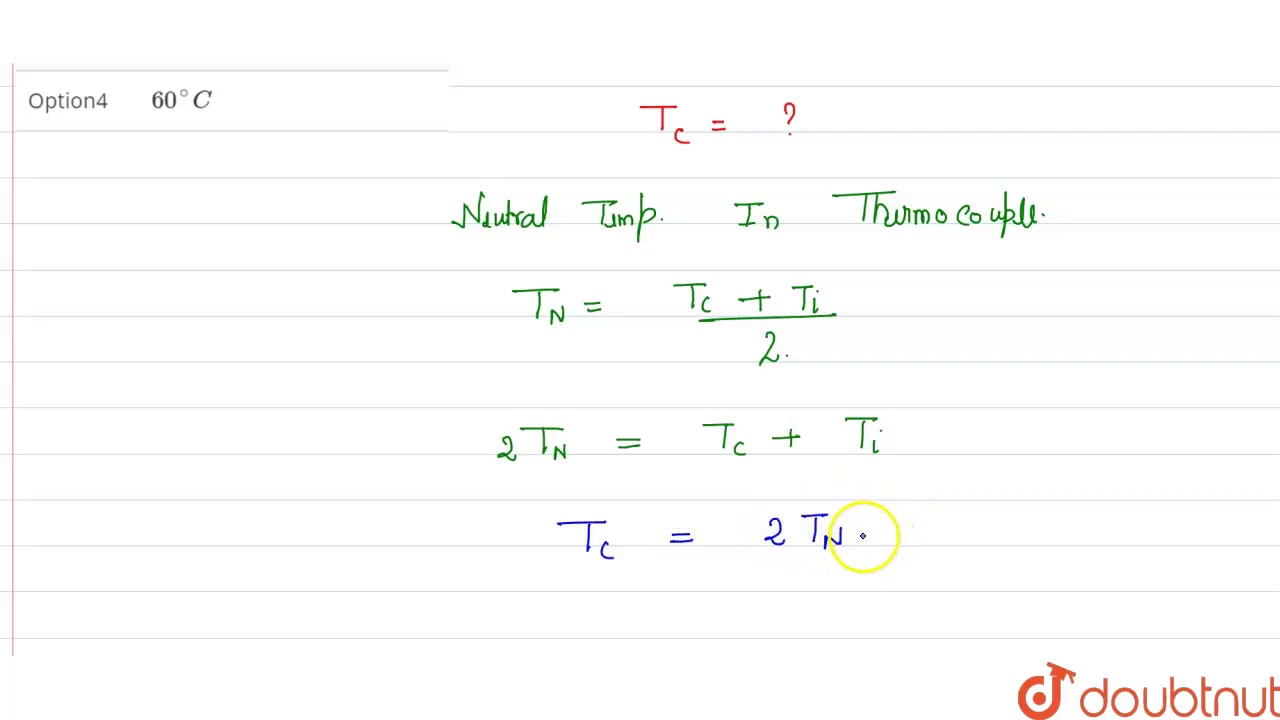 Option4 60°C
T_C = ?
Neutral Temp. In Thermocouple.
T_N = (T_C + T_i) / 2.
2 T_N = T_C + T_i
T_C = 2 T_N
doubtnut